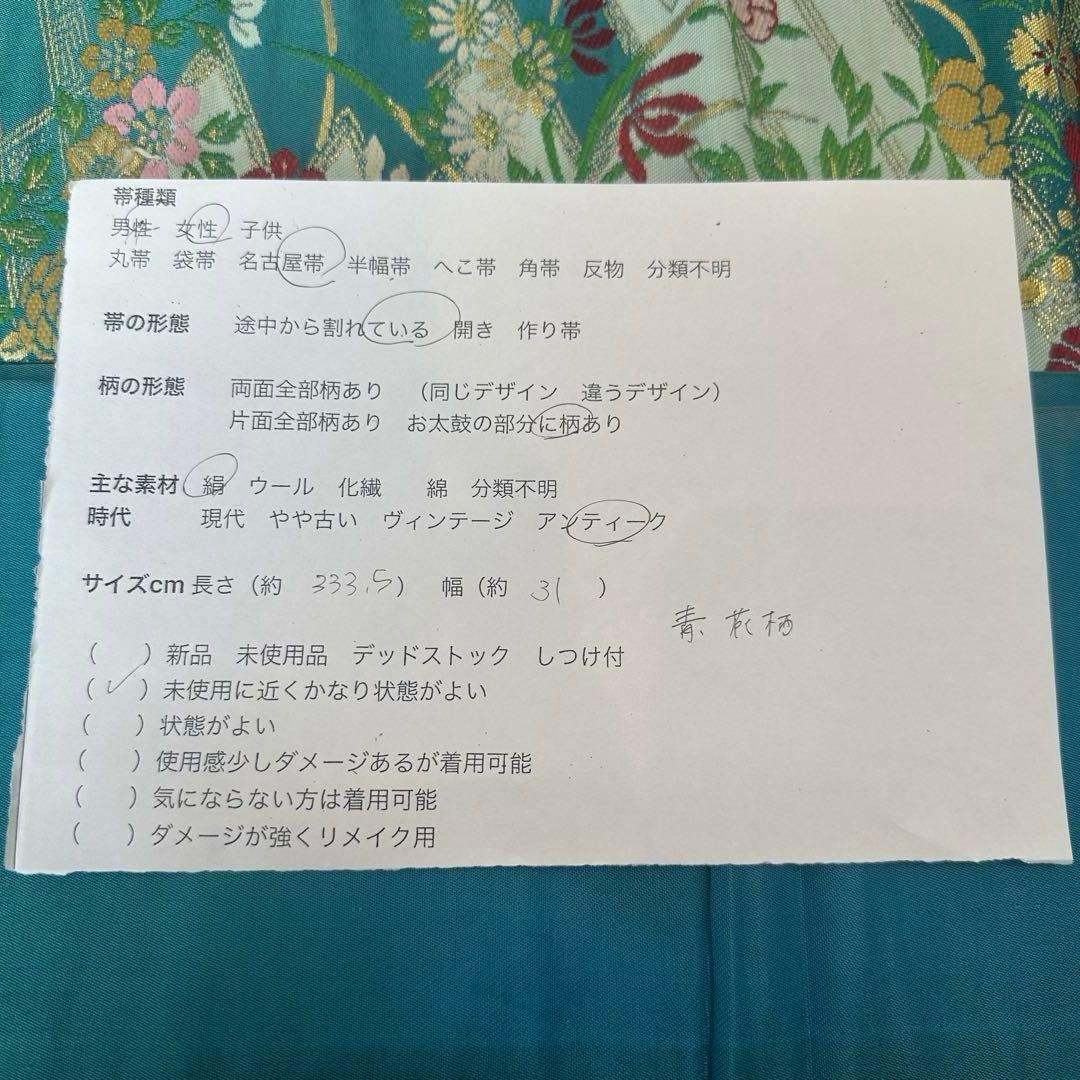 帯種類
男性 女性 子供
丸帯 袋帯 名古屋帯 半幅帯 へこ帯 角帯 反物 分類不明
帯の形態 途中から割れている 開き 作り帯
柄の形態 両面全部柄あり (同じデザイン 違うデザイン)
片面全部柄あり お太鼓の部分に柄あり
主な素材 絹 ウール 化繊 綿 分類不明
時代 現代 やや古い ヴィンテージ アンティーク
サイズcm 長さ (約 333.5) 幅 (約 31 )
青、花柄
( )新品 未使用品 デッドストック しつけ付
(✓)未使用に近くかなり状態がよい
( )状態がよい
( )使用感少しダメージあるが着用可能
( )気にならない方は着用可能
( )ダメージが強くリメイク用